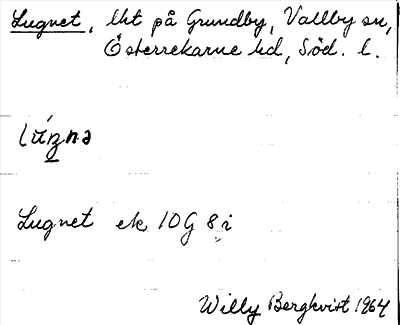 Lugnet, lht på Grundby, Vallby sn,
Österrekarne hd, Söd. l.
Lugnet ek 10G 8 i
Willy Bergkvist 1964